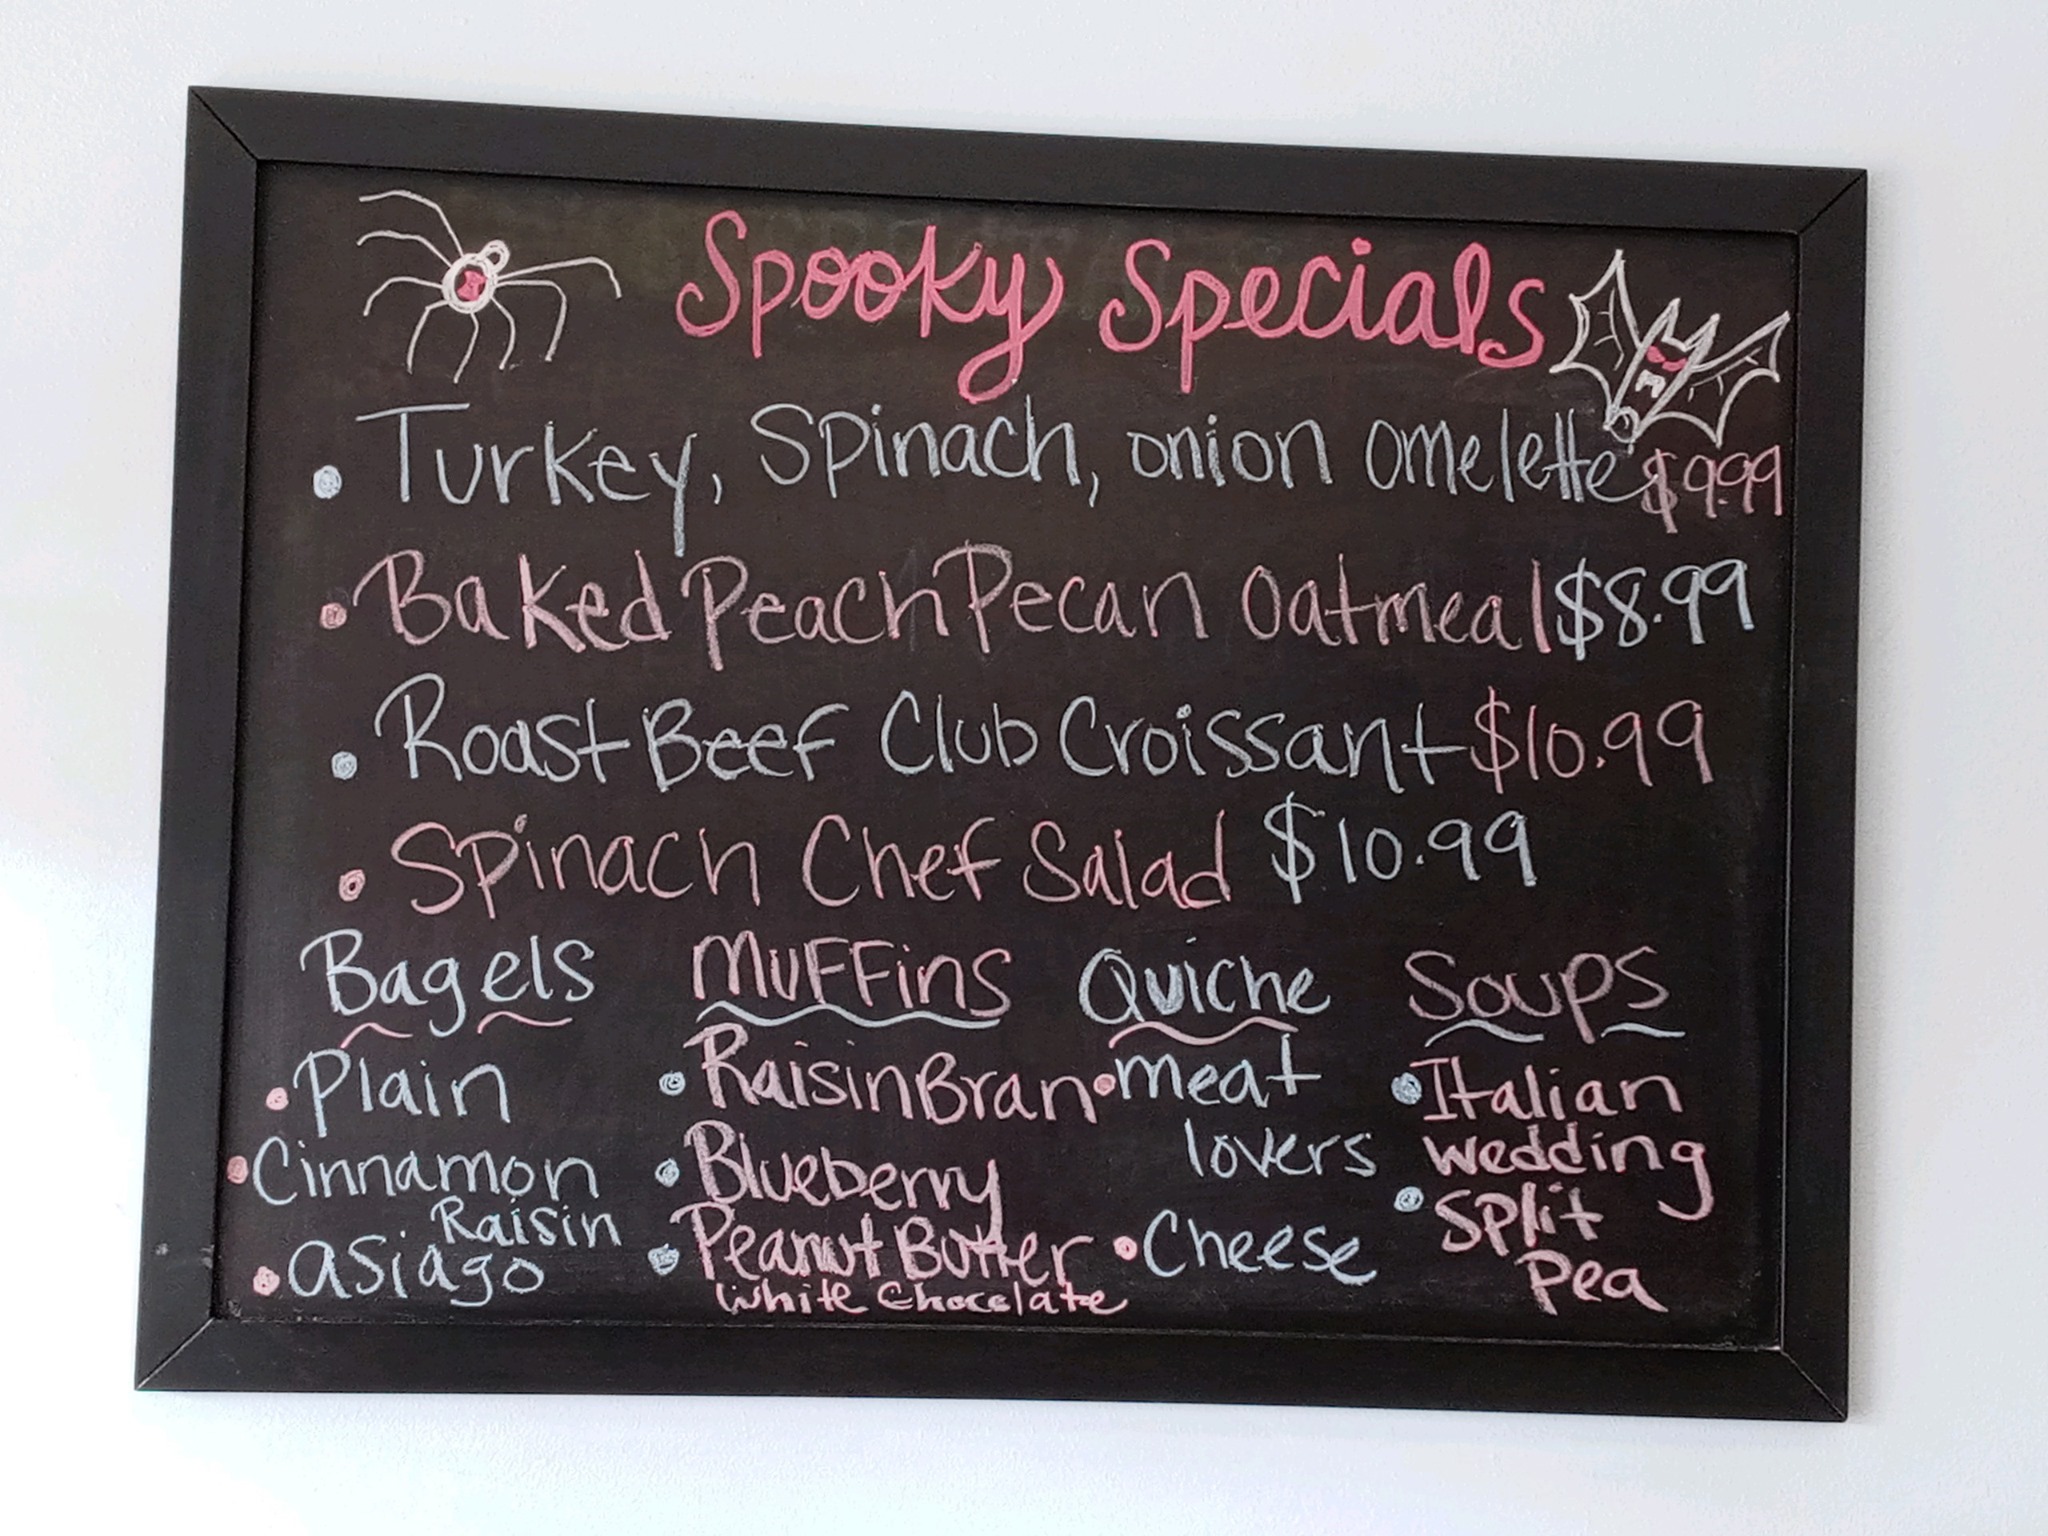 Spooky Specials
• Turkey, Spinach, onion omelette $9.99
• Baked Peach Pecan Oatmeal $8.99
• Roast Beef Club Croissant $10.99
• Spinach Chef Salad $10.99
Bagels
• Plain
• Cinnamon
Raisin
• asiago
MuFFins
• Raisin Bran
• Blueberry
• Peanut Butter
White Chocolate
Quiche
• meat
lovers
• Cheese
Soups
• Italian
wedding
• Split
Pea